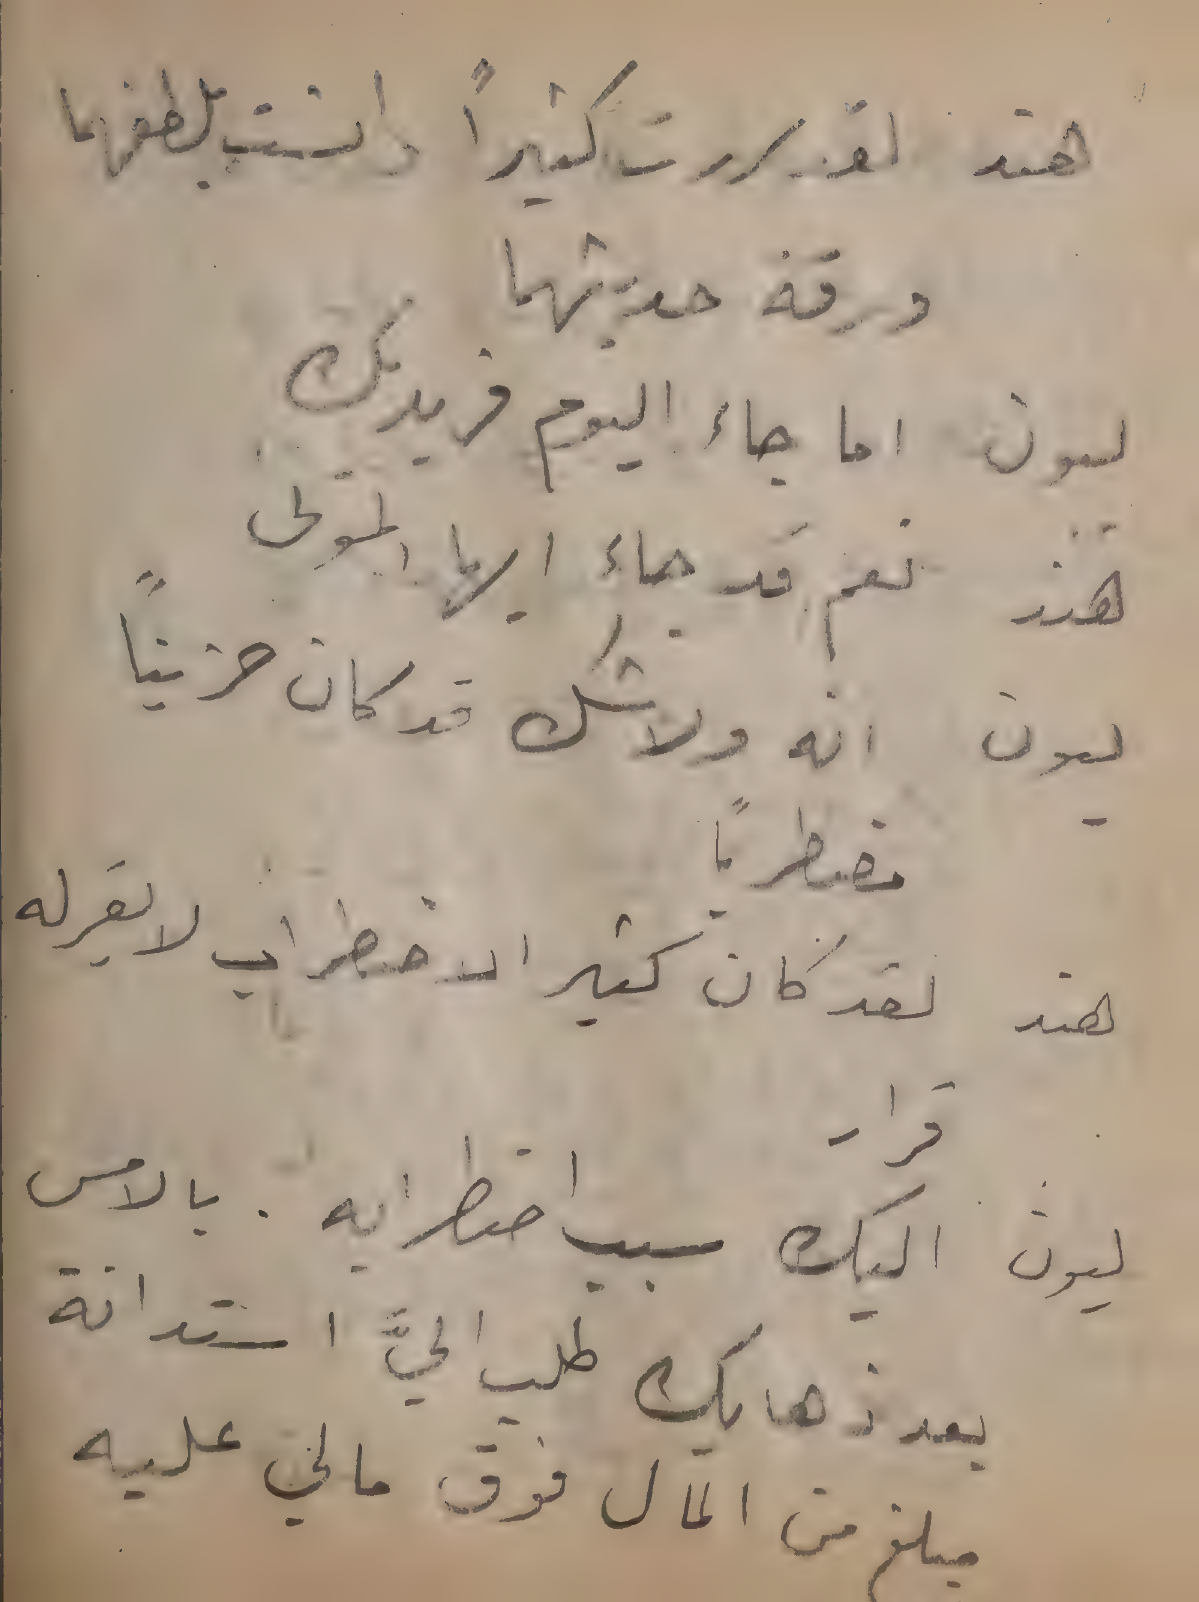 هند لقد سررت كثيراً وانست بلطفهما
ورقة حديثهما
ليون اما جاء اليوم فريد بك
هند نعم قد جاء الينا المتولى
ليون انه ولاشك قد كان حزيناً
مضطرباً
هند لقد كان كثير الاضطراب لا يقر له
قرار
ليون اليك سبب اضطرابه . بالامس
بعد ذهابك طلب اليَّ استدانة
مبلغ من المال فوق مالي عليه